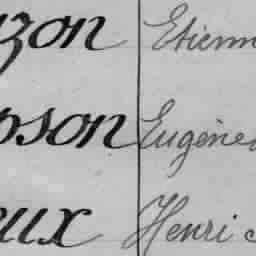 zon Etienn
pson Eugène
eux Henri